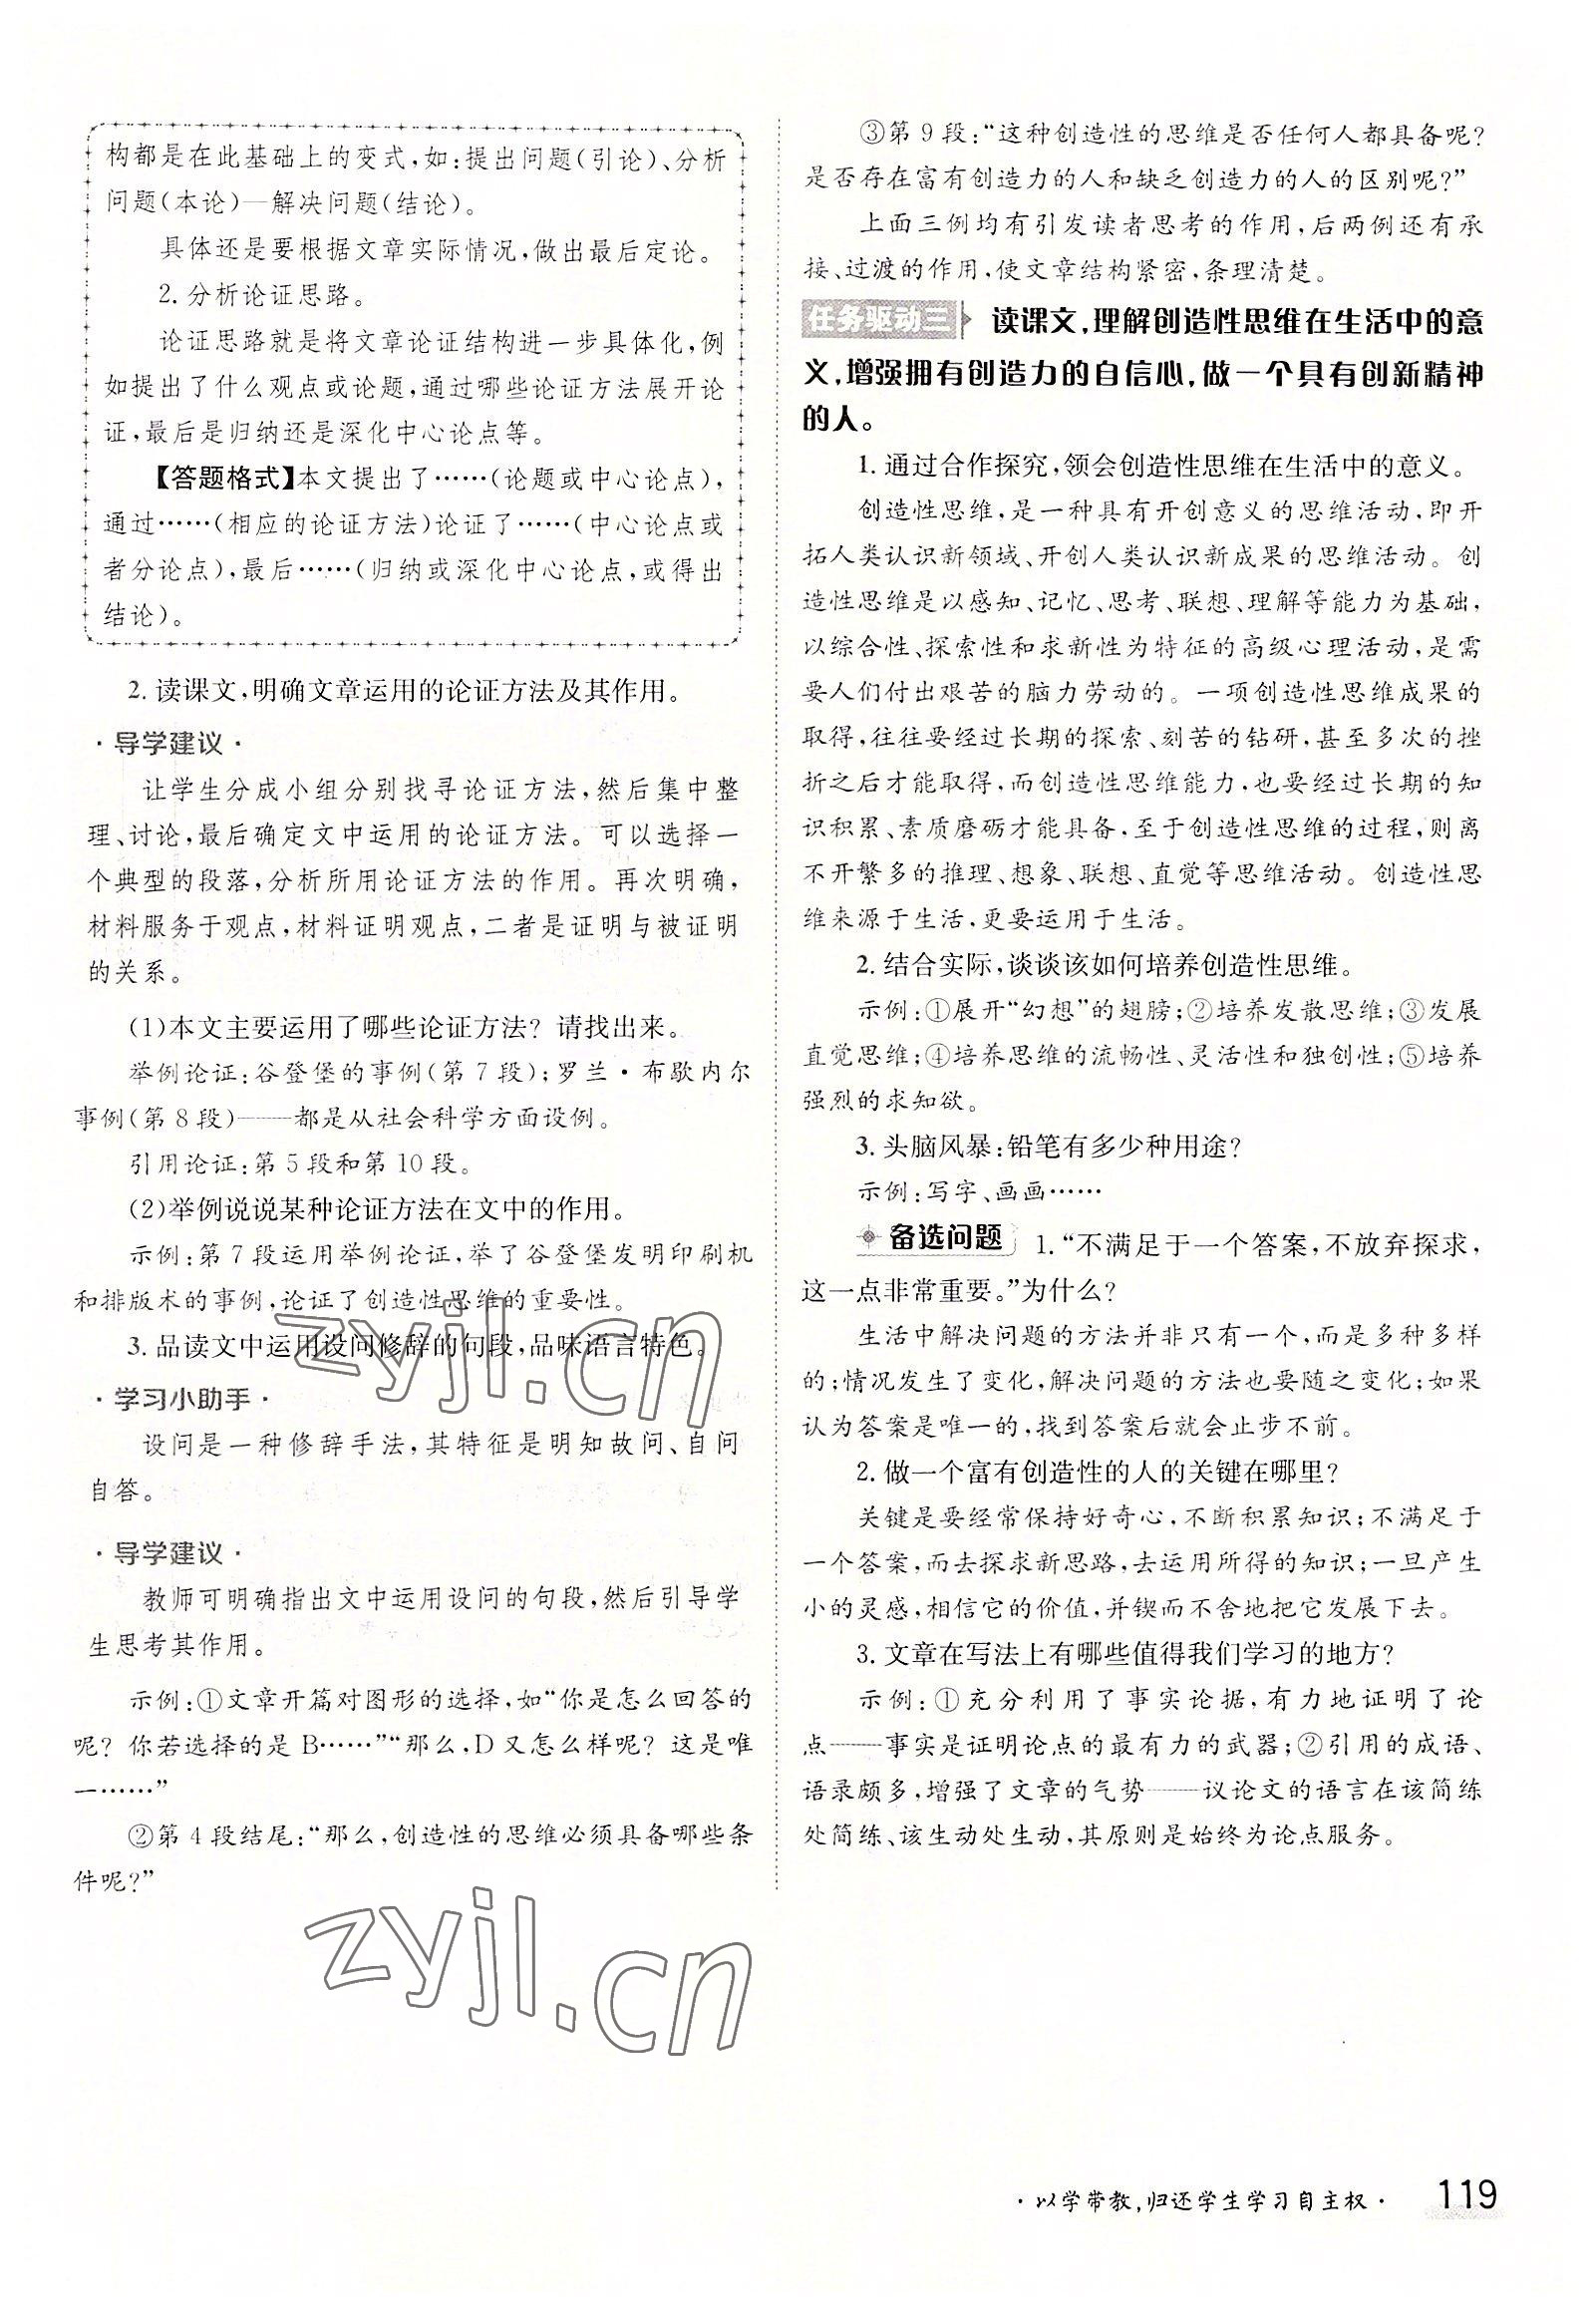 构都是在此基础上的变式,如:提出问题(引论)、分析
问题(本论)—解决问题(结论)。
具体还是要根据文章实际情况,做出最后定论。
2. 分析论证思路。
论证思路就是将文章论证结构进一步具体化,例
如提出了什么观点或论题,通过哪些论证方法展开论
证,最后是归纳还是深化中心论点等。
【答题格式】本文提出了……(论题或中心论点),
通过……(相应的论证方法)论证了……(中心论点或
者分论点),最后……(归纳或深化中心论点,或得出
结论)。
2. 读课文,明确文章运用的论证方法及其作用。
·导学建议·
让学生分成小组分别找寻论证方法,然后集中整
理、讨论,最后确定文中运用的论证方法。可以选择一
个典型的段落,分析所用论证方法的作用。再次明确,
材料服务于观点,材料证明观点,二者是证明与被证明
的关系。
(1)本文主要运用了哪些论证方法? 请找出来。
举例论证:谷登堡的事例(第 7 段);罗兰·布歇内尔
事例(第 8 段)——都是从社会科学方面设例。
引用论证:第 5 段和第 10 段。
(2)举例说说某种论证方法在文中的作用。
示例:第 7 段运用举例论证,举了谷登堡发明印刷机
和排版术的事例,论证了创造性思维的重要性。
3. 品读文中运用设问修辞的句段,品味语言特色。
·学习小助手·
设问是一种修辞手法,其特征是明知故问、自问
自答。
·导学建议·
教师可明确指出文中运用设问的句段,然后引导学
生思考其作用。
示例:①文章开篇对图形的选择,如“你是怎么回答的
呢? 你若选择的是 B……”“那么,D 又怎么样呢? 这是唯
一……”
②第 4 段结尾:“那么,创造性的思维必须具备哪些条
件呢?”
③第 9 段:“这种创造性的思维是否任何人都具备呢?
是否存在富有创造力的人和缺乏创造力的人的区别呢?”
上面三例均有引发读者思考的作用,后两例还有承
接、过渡的作用,使文章结构紧密,条理清楚。
任务驱动三 读课文,理解创造性思维在生活中的意
义,增强拥有创造力的自信心,做一个具有创新精神
的人。
1. 通过合作探究,领会创造性思维在生活中的意义。
创造性思维,是一种具有开创意义的思维活动,即开
拓人类认识新领域、开创人类认识新成果的思维活动。创
造性思维是以感知、记忆、思考、联想、理解等能力为基础,
以综合性、探索性和求新性为特征的高级心理活动,是需
要人们付出艰苦的脑力劳动的。一项创造性思维成果的
取得,往往要经过长期的探索、刻苦的钻研,甚至多次的挫
折之后才能取得,而创造性思维能力,也要经过长期的知
识积累、素质磨砺才能具备,至于创造性思维的过程,则离
不开繁多的推理、想象、联想、直觉等思维活动。创造性思
维来源于生活,更要运用于生活。
2. 结合实际,谈谈该如何培养创造性思维。
示例:①展开“幻想”的翅膀;②培养发散思维;③发展
直觉思维;④培养思维的流畅性、灵活性和独创性;⑤培养
强烈的求知欲。
3. 头脑风暴:铅笔有多少种用途?
示例:写字、画画……
备选问题 1. “不满足于一个答案,不放弃探求,
这一点非常重要。”为什么?
生活中解决问题的方法并非只有一个,而是多种多样
的;情况发生了变化,解决问题的方法也要随之变化;如果
认为答案是唯一的,找到答案后就会止步不前。
2. 做一个富有创造性的人的关键在哪里?
关键是要经常保持好奇心,不断积累知识;不满足于
一个答案,而去探求新思路,去运用所得的知识;一旦产生
小的灵感,相信它的价值,并锲而不舍地把它发展下去。
3. 文章在写法上有哪些值得我们学习的地方?
示例:①充分利用了事实论据,有力地证明了论
点——事实是证明论点的最有力的武器;②引用的成语、
语录颇多,增强了文章的气势——议论文的语言在该简练
处简练、该生动处生动,其原则是始终为论点服务。
zyjl.cn
zyjl.cn
·以学带教,归还学生学习自主权· 119